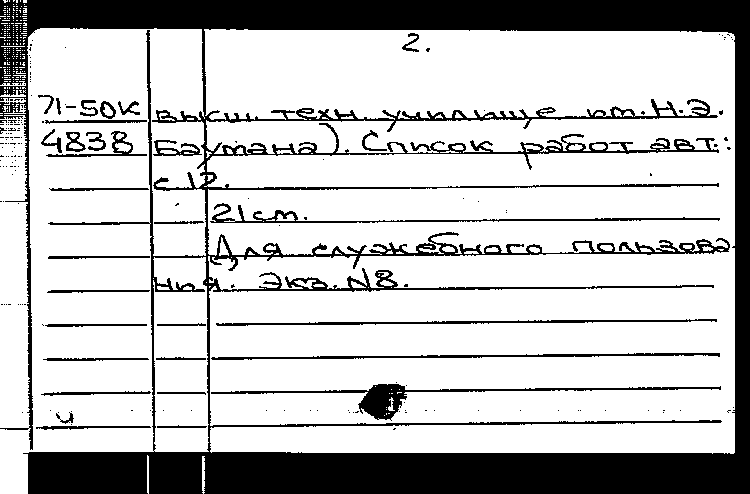 2.
71-50к высш. техн. училище им. Н.Э.
4838 Баумана). Список работ авт.:
с 12.
21 см.
Для служебного пользова-
ния. Экз. N8.
ч